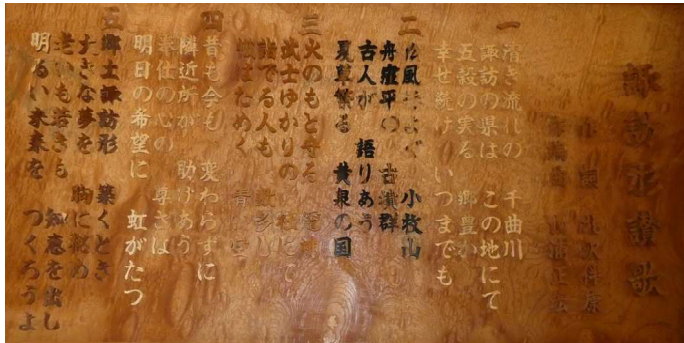 諏訪形讃歌
一 清き流れの 千曲川
諏訪の県は この地にて
五穀の実る 郷豊か
幸せ続け いつまでも
二 風そよぐ 小牧山
舟窪平の 古墳群
古人が 語りあう
夏草繁る 黄泉の国
三 火のもと守る
武士ゆかりの
詣でる人も 数多し
はためく
四 昔も今も 変わらずに
隣近所が 助けあう
奉仕の心の 尊さは
明日の希望に 虹がたつ
五 郷土諏訪形 築くとき
大きな夢を 胸に秘め
老いも若きも 知恵を出し
明るい未来を つくろうよ